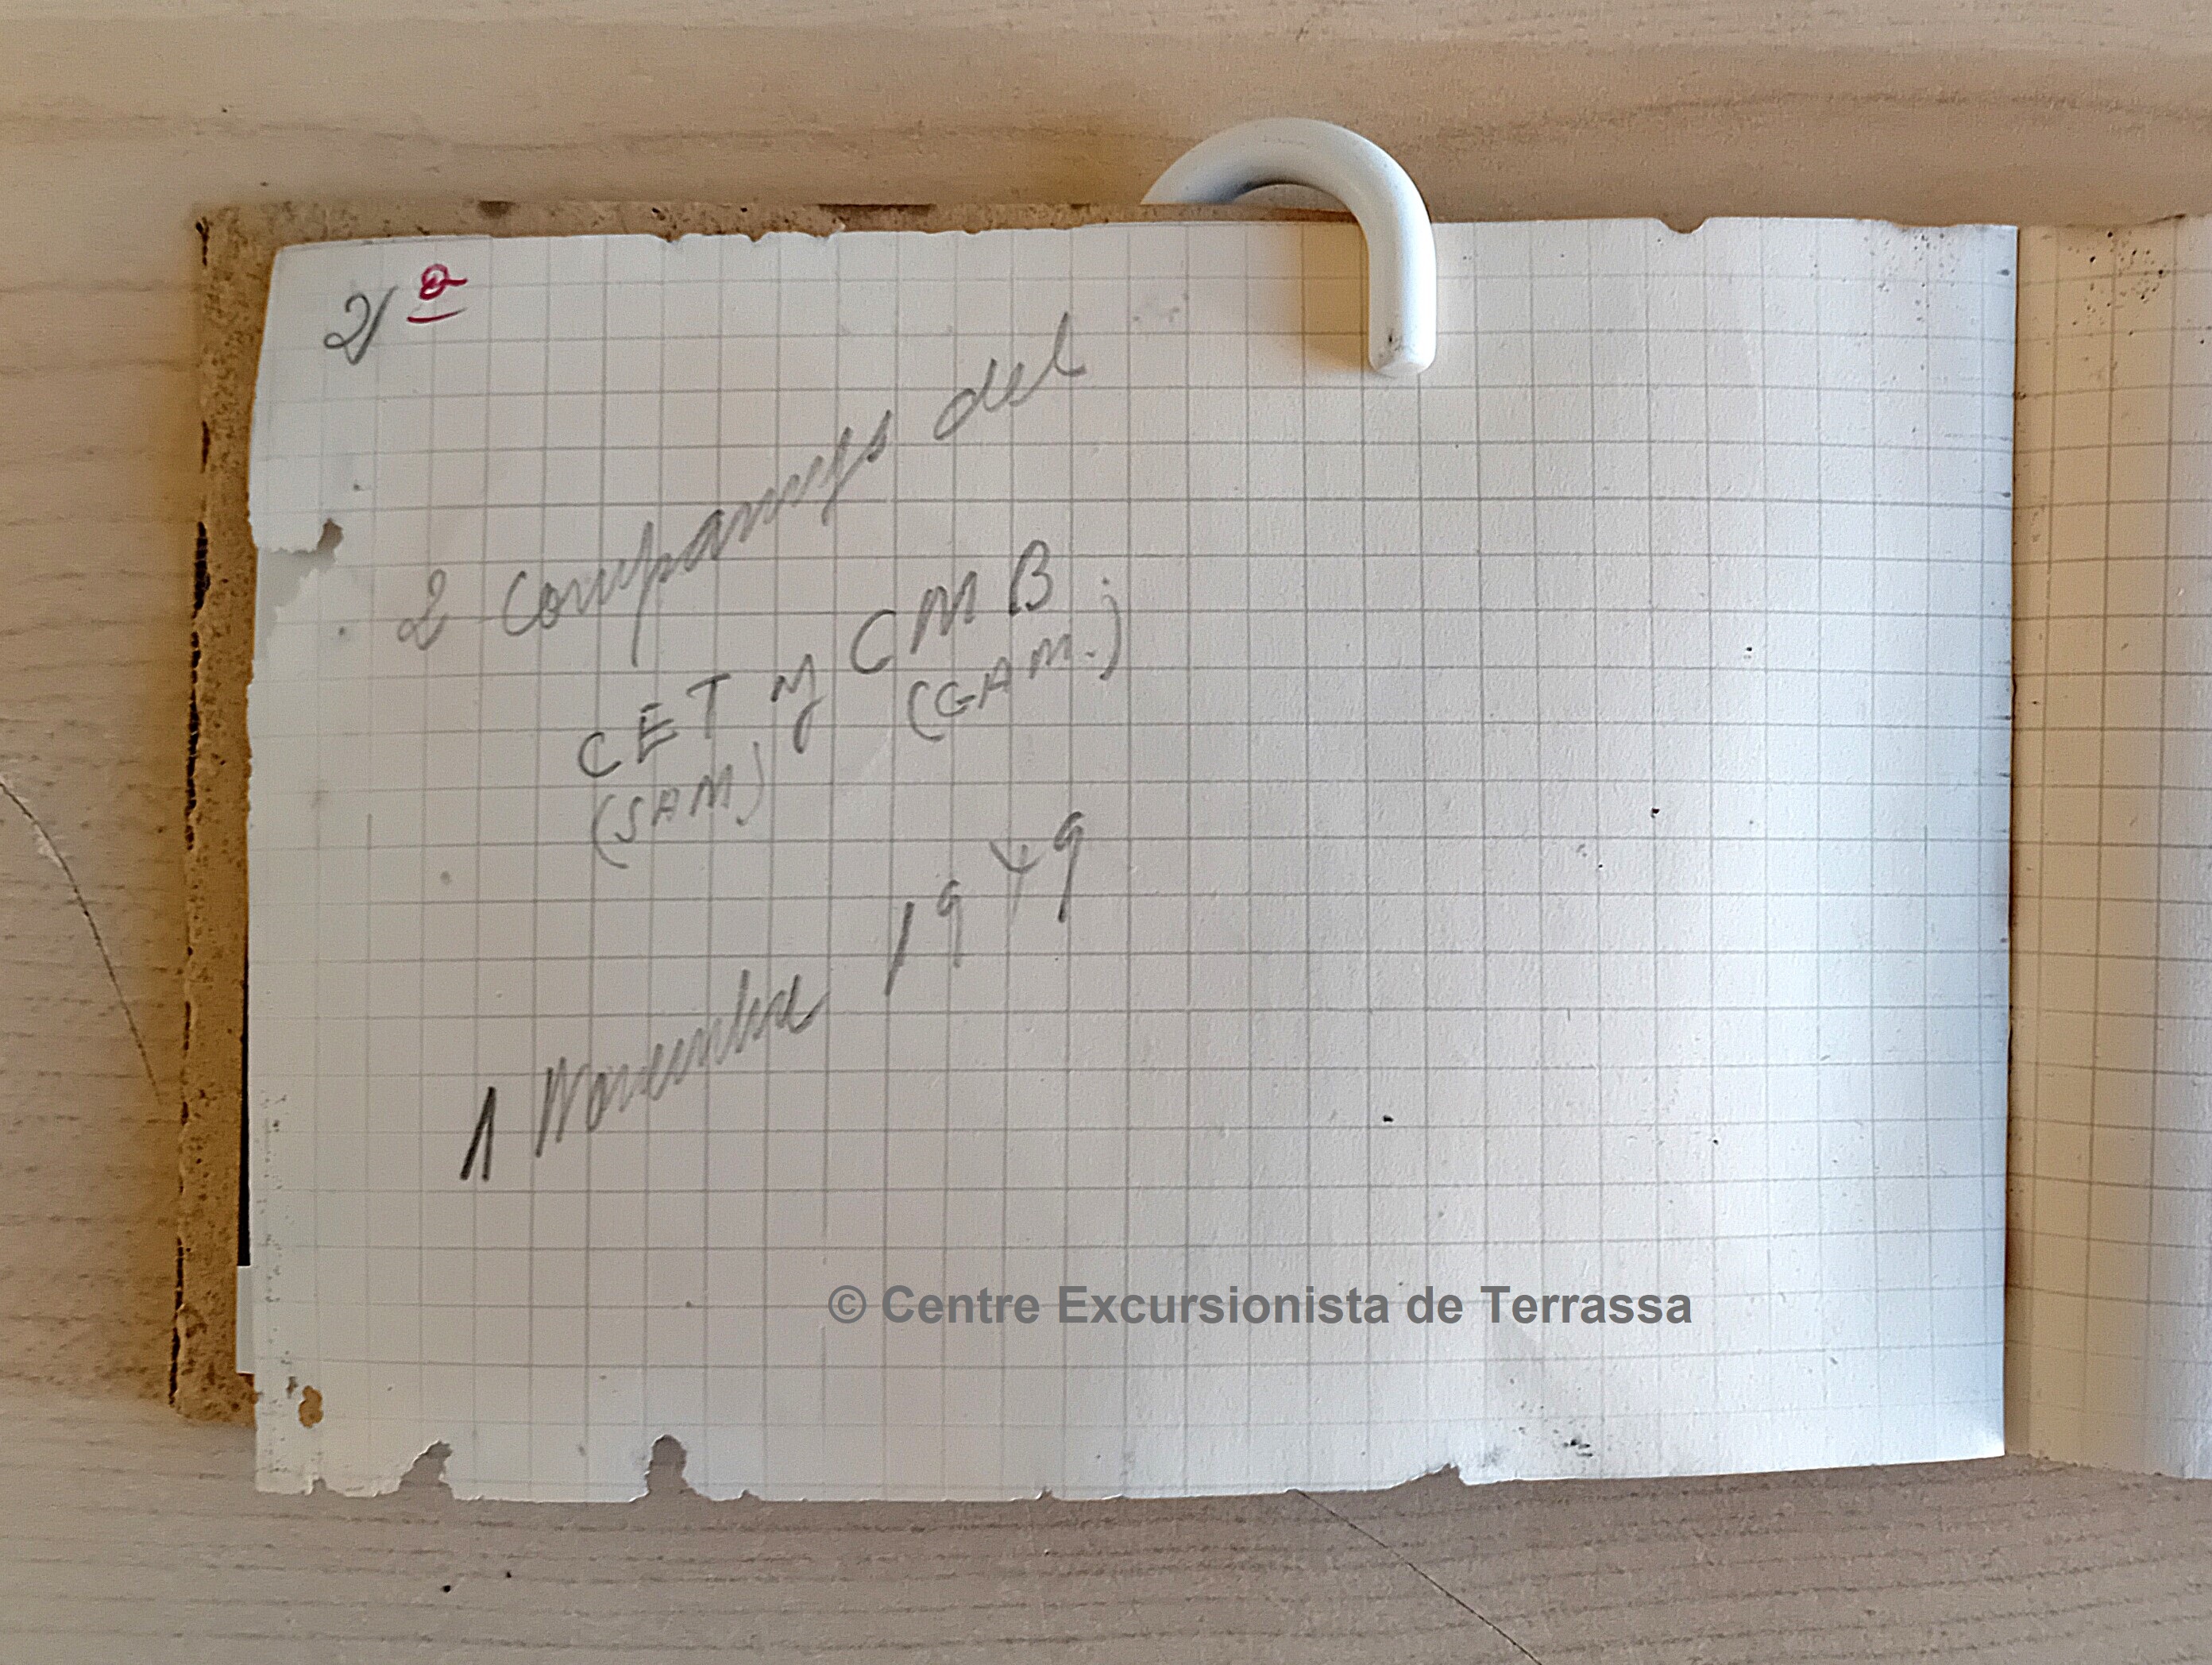 2
2 companys del
CET y CMB
(SAM) (GAM.)
1 Novembre 1949
© Centre Excursionista de Terrassa